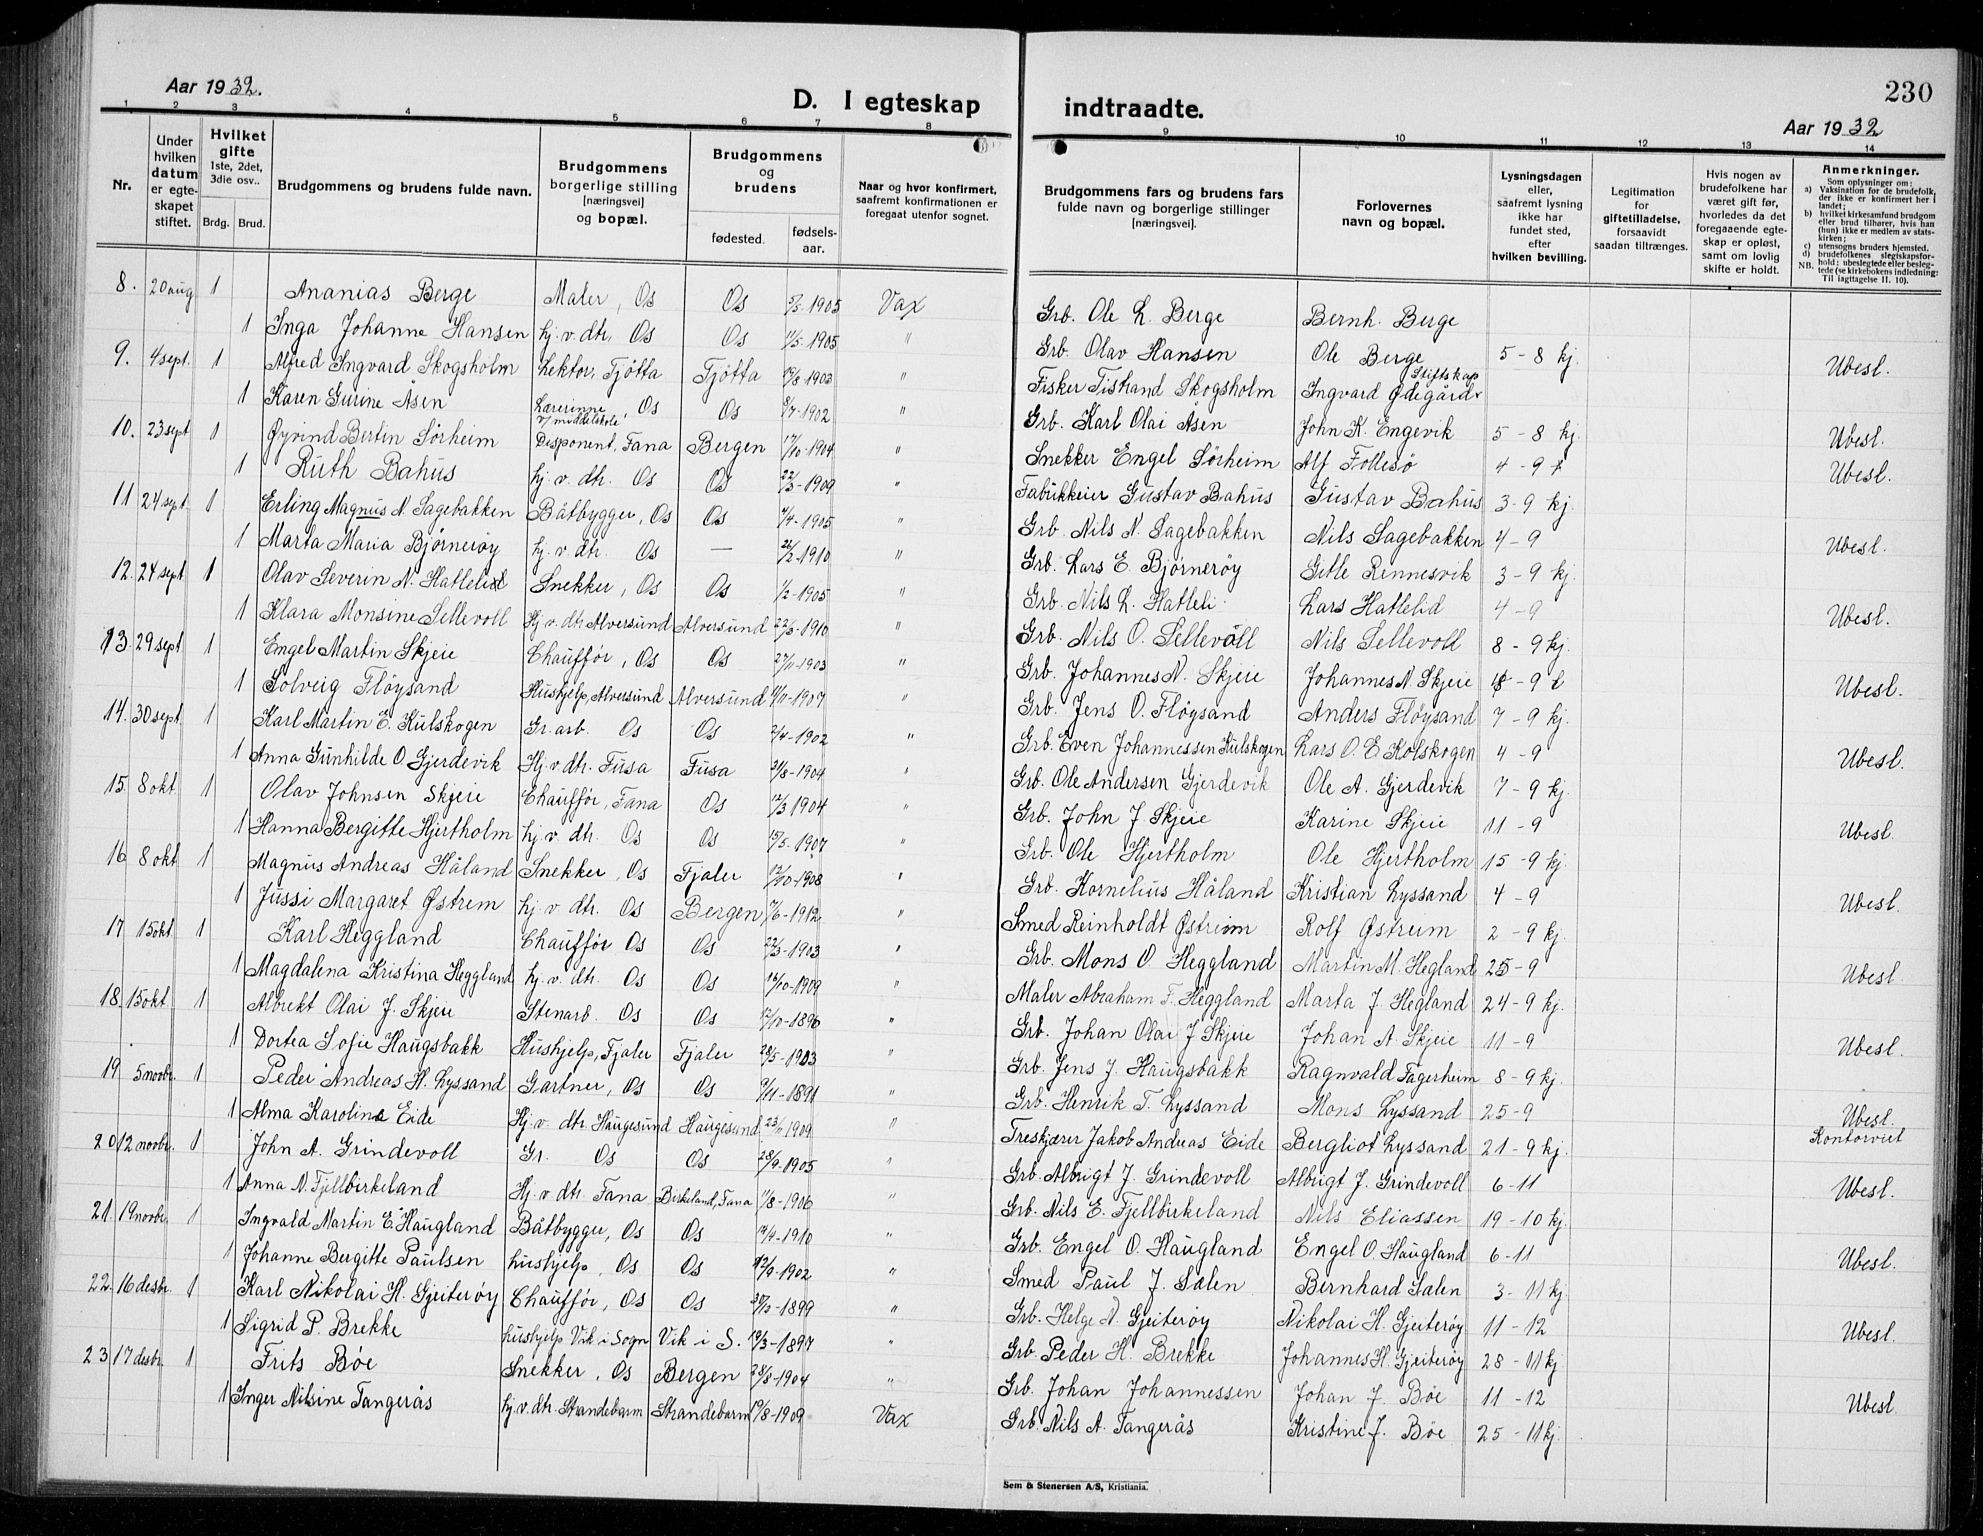 230
Aar 1932.
D. I egteskap indtraadte.
Aar 1932
1 2 3 4 5 6 7 8 9 10 11 12 13 14
Nr.
Under hvilken datum er egteskapet stiftet.
Hvilket gifte 1ste, 2det, 3die osv..
Brdg. Brud.
Brudgommens og brudens fulde navn.
Brudgommens borgerlige stilling [næringsvei] og bopæl.
Brudgommens og brudens
fødested. fødselsaar.
Naar og hvor konfirmert, saafremt konfirmationen er foregaat utenfor sognet.
Brudgommens fars og brudens fars fulde navn og borgerlige stillinger [næringsvei].
Forlovernes navn og bopæl.
Lysningsdagen eller, saafremt lysning ikke har fundet sted, efter hvilken bevilling.
Legitimation for giftetilladelse, forsaavidt saadan tiltrænges.
Hvis nogen av brudefolkene har været gift før, hvorledes da det foregaaende egteskap er opløst, samt om lovlig skifte er holdt.
Anmerkninger.
Som oplysninger om:
a) Vaksination for de brudefolk, der ikke er konfirmert her i landet;
b) hvilket kirkesamfund brudgom eller brud tilhører, hvis han (hun) ikke er medlem av statskirken;
c) utensogns bruders hjemsted,
d) brudefolkenes slegtskapsforhold: ubeslegtede eller beslegtede (se kirkebokens indledning: NB. Til iagttagelse II. 10).
8. 20 aug 1 Ananias Berge Maler, Os Os 5/5-1905 Vax Grb. Ole L. Berge Bernh. Berge
1 Inga Johanne Hansen hj. v. dtr. Os Os 11/5-1905 " Grb. Olav Hansen Ole Berge 5-8 kj. Ubesl.
9. 4 sept. 1 Alfred Ingvard Skogsholm Lektor, Tjøtta Tjøtta 19/8-1903 " Fisker Tistrand Skogsholm Ingvard Ødegård Stiftskap
1 Karen Gurine Åsen Lærerinne v/ middelskole, Os Os 8/7-1902 " Grb. Karl Olai Åsen John K. Engevik 5-8 kj. Ubesl.
10. 23 sept 1 Øyvind Bertin Sørheim Disponent, Fana Bergen 17/10-1904 " Snekker Engel Sørheim Alf Follesø 4-9 Ubesl.
1 Ruth Bahus hj. v. dtr. Os Os 22/3-1909 Fabrikkeier Gustav Bahus Gustav Bahus 3-9 kj.
11 24 sept 1 Erling Magnus N. Sagebakken Båtbygger, Os Os 4/4-1905 " Grb. Nils N. Sagebakken Nils Sagebakken 4-9 Ubesl.
1 Marta Maria Bjørnerøy hj. v. dtr. Os — 26/2-1910 " Grb. Lars E. Bjørnerøy Gitle Rennesvik 3-9 kj.
12. 24 sept 1 Olav Severin N. Hatlelid Snekker, Os Os 1/2-1905 " Grb. Nils L. Hatleli Lars Hatlelid 4-9 Ubesl.
1 Klara Monsine Sellevoll Hj. v. dtr Alversund Alversund 22/3-1910 " Grb. Nils O. Sellevoll Nils Sellevoll 8-9 kj.
13. 29 sept 1 Engel Martin Skjeie Chauffør, Os Os 27/11-1903 " Grb. Johannes N. Skjeie Johannes N. Skjeie 4-9 Ubesl.
1 Solveig Fløysand Hushjelp, Alversund Alversund 4/11-1907 " Grb. Jens O. Fløysand Anders Fløysand 7-9 kj.
14. 30 sept 1 Karl Martin E. Kulskogen Gr. arb. Os Os 2/4-1902 " Grb. Even Johannessen Kulskogen Lars O. E Kolskogen 4-9 Ubesl.
1 Anna Gunhilde O. Gjerdevik Hj. v. dtr. Fusa Fusa 21/8-1904 " Grb. Ole Andersen Gjerdevik Ole A. Gjerdevik 7-9 kj.
15. 8 okt 1 Olav Johnsen Skjeie Chauffør, Fana Os 12/3 1904 " Grb. John J. Skjeie Karine Skjeie 11-9 Ubesl.
1 Hanna Bergitte Hjertholm hj. v. dtr. Os Os 15/5-1907 " Grb. Ole Hjertholm Ole Hjertholm 15-9 kj.
16 8 okt 1 Magnus Andreas Håland Snekker, Os Fjaler 12/10-1908 " Grb. Kornelius Håland Kristian Lyssand 4-9 Ubesl.
1 Jussi Margaret Østrem hj. v. dtr. Os Bergen 7/6-1912 " Smed Reinholdt Østreim Rolf Østrem 2-9 kj.
17 15 okt 1 Karl Heggland Chauffør, Os Os 22/3-1903 " Grb. Mons O. Heggland Martin M. Hegland 25-9 Ubesl.
1 Magdalena Kristina Heggland hj. v. dtr. Os Os 16/10-1909 " Maler Abraham F. Heggland Marta J. Hegland 24-9 kj.
18. 15 okt 1 Albrekt Olai J. Skjeie Stenarb. Os Os 12/10-1896 " Grb. Johan Olai J Skjeie Johan A. Skjeie 11-9 Ubesl.
1 Dortea Sofie Haugsbakk Hushjelp, Fjaler Fjaler 28/5-1903 " Grb. Jens J. Haugsbakk Ragnvald Fagerheim 8-9 kj.
19 5 novbr. 1 Peder Andreas H. Lyssand Gartner, Os Os 9/11-1891 " Grb. Henrik T. Lyssand Mons Lyssand 25-9 Ubesl.
1 Alma Karoline Eide Hj. v. dtr Haugesund Haugesund 23/11 1909 " Treskjærer Jakob Andreas Eide Bergliot Lyssand 21-9 kj. Kontorvist
20 12 novbr. 1 John A. Grindevoll Gr. Os Os 28/9-1905 " Grb. Albrigt J. Grindevoll Albrigt J. Grindevoll 6-11 Ubesl.
1 Anna N. Fjellbirkeland Hj. v. dtr. Fana Birkeland, Fana 11/8-1906 " Grb. Nils E. Fjellbirkeland Nils Eliassen 19-10 kj.
21. 19 novbr. 1 Ingvald Martin E. Haugland Båtbygger, Os Os 14/4-1910 " Grb. Engel O. Haugland Engel O. Haugland 6-11 Ubesl.
1 Johanne Bergitte Paulsen hushjelp, Os Os 12/9-1902 " Smed Paul J. Salen Bernhard Salen 3-11 kj.
22. 16 desbr. 1 Karl Nikolai H. Gjeiterøy Chauffør, Os Os 30/3-1899 " Grb. Helge N. Gjeiterøy Nikolai H. Gjeiterøy 11-12 Ubesl.
1 Sigrid P. Brekke hushjelp Vik i Sogn Vik i S. 19/3-1897 " Grb. Peder H. Brekke Johannes H. Gjeiterøy 28-11 kj
23 17 desbr. 1 Frits Bøe Snekker, Os Bergen 28/8-1904 " Grb. Johan Johannessen Johan J. Bøe 11-12 Ubesl.
1 Inger Nilsine Tangerås hj. v. dtr. Strandebarm Strandebarm 19/8-1909 Vax Grb. Nils A. Tangerås Kristine J. Bøe 25-11 kj.
Sem & Stenersen A/S, Kristiania.